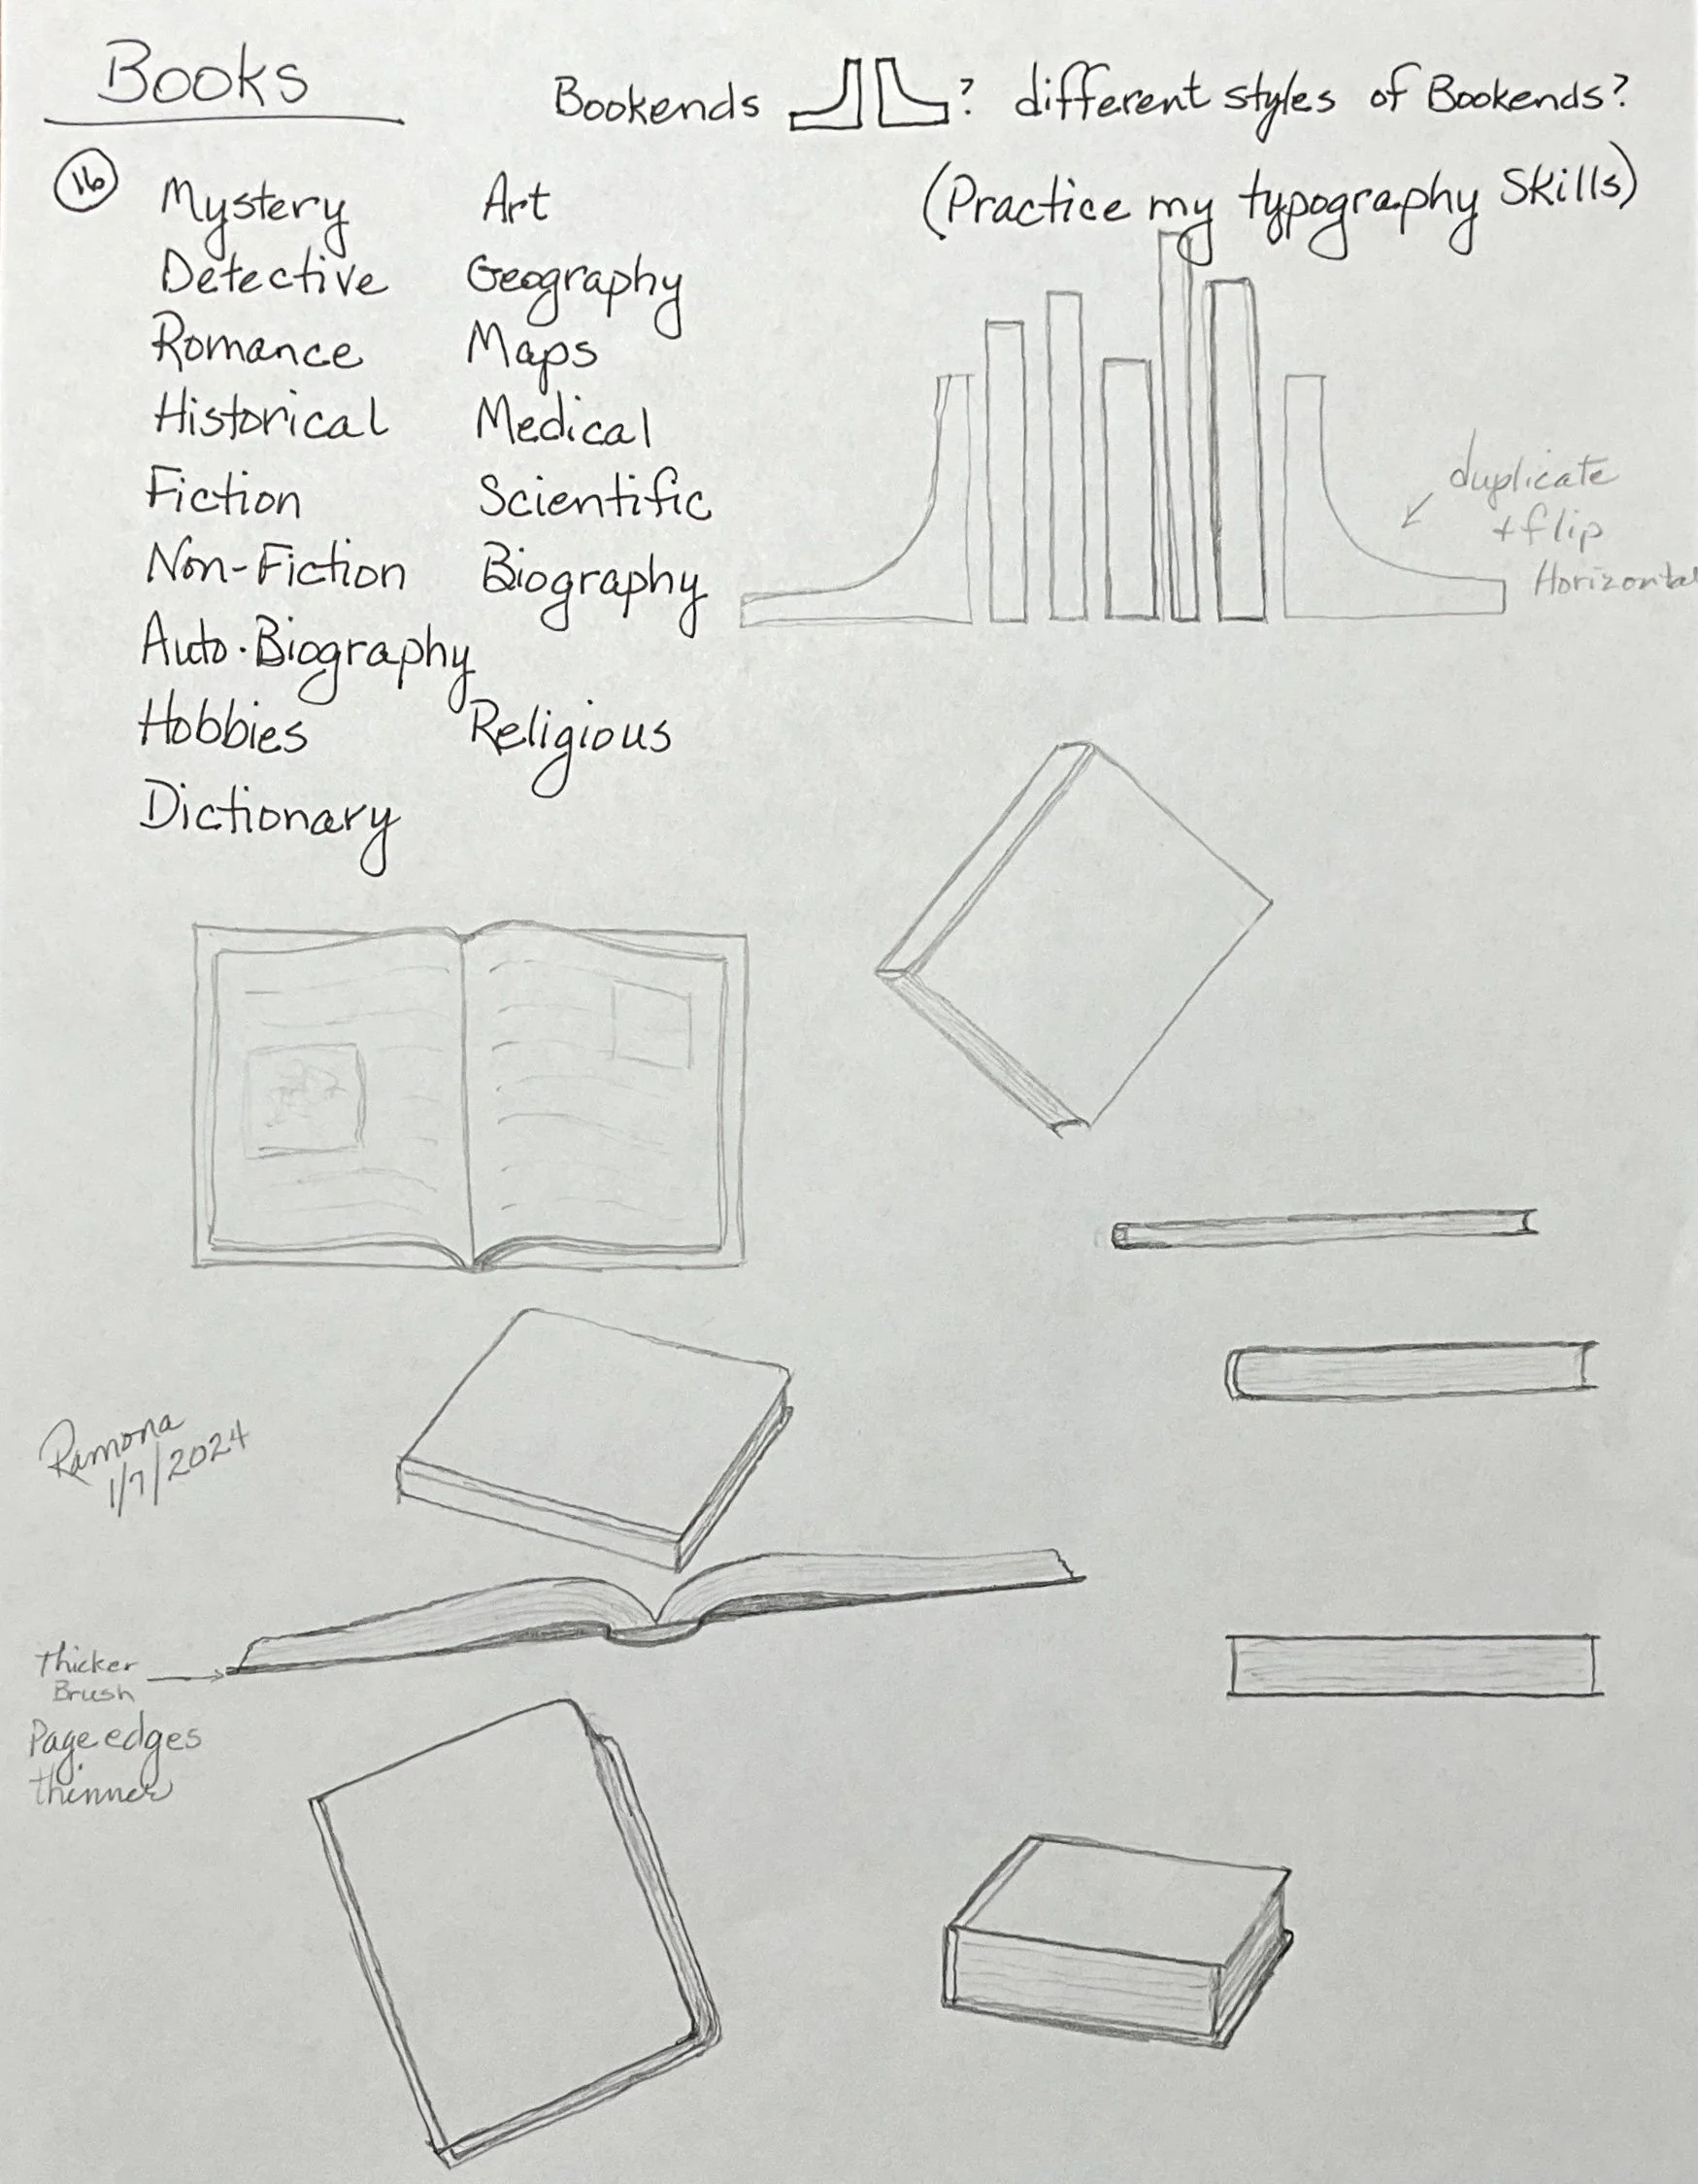 Books
Bookends ? different styles of Bookends?
(Practice my typography Skills)
16
Mystery
Detective
Romance
Historical
Fiction
Non-Fiction
Auto·Biography
Hobbies
Dictionary
Art
Geography
Maps
Medical
Scientific
Biography
Religious
duplicate
+ flip
Horizontal
Ramona
1/7/2024
Thicker
Brush
Page edges
thinner